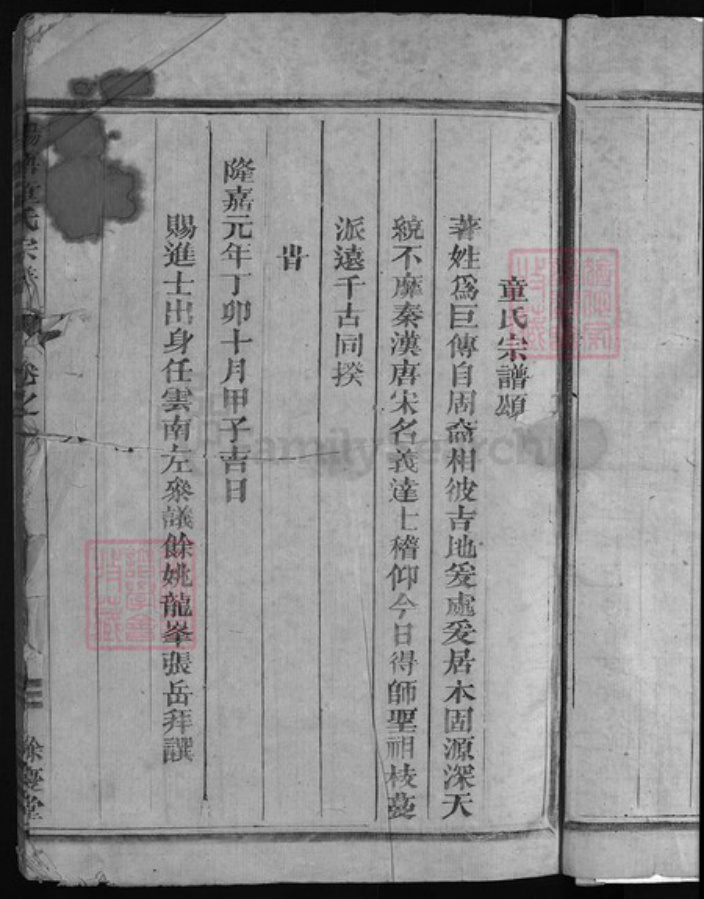 童氏宗譜頌
著姓爲巨傳自周裔相彼吉地爰處爰居木固源深天
統不靡秦漢唐宋名義達士稽仰今日得師聖祖枝蔓
派遠千古同揆
旹
隆嘉元年丁卯十月甲子吉日
賜進士出身任雲南左叅議餘姚龍峯張岳拜譔
童氏宗譜
卷之
餘慶堂
FamilySearch